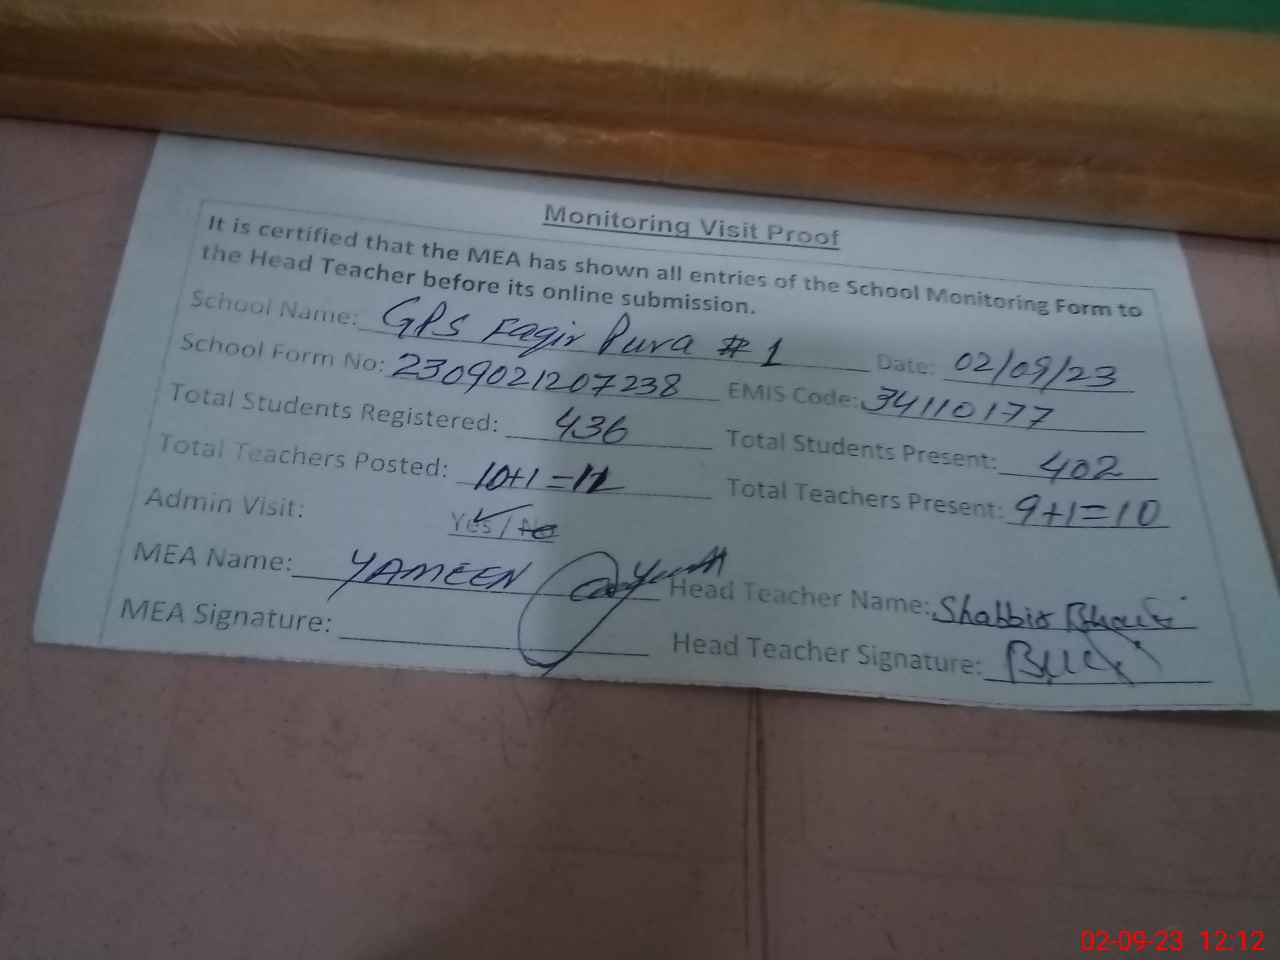 Monitoring Visit Proof
It is certified that the MEA has shown all entries of the School Monitoring Form to
the Head Teacher before its online submission.
School Name: GPS Faqir Pura # 1 Date: 02/09/23
School Form No: 2309021207238 EMIS Code: 34110177
Total Students Registered: 436 Total Students Present: 402
Total Teachers Posted: 10+1=11 Total Teachers Present: 9+1=10
Admin Visit: Yes / No
MEA Name: YAMEEN Head Teacher Name: Shabbir
MEA Signature: Head Teacher Signature:
02-09-23 12:12